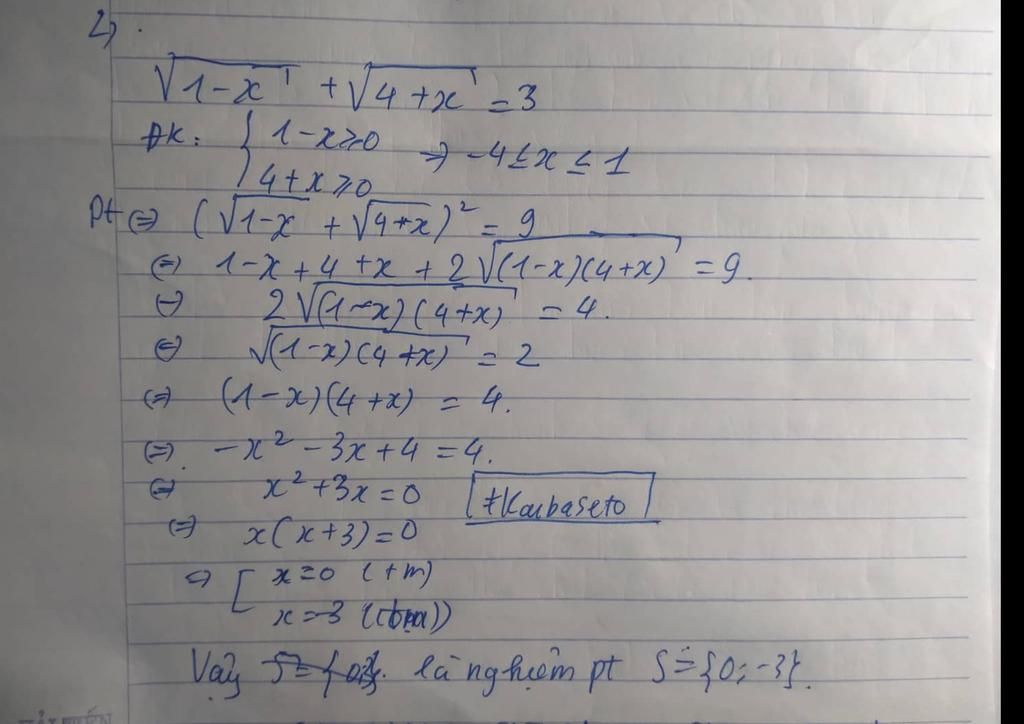 2)
√(1-x) + √(4+x) = 3
ĐK: { 1-x≥0
4+x≥0 => -4≤x≤1
Pt <=> (√(1-x) + √(4+x))² = 9
<=> 1-x+4+x+2√((1-x)(4+x)) = 9.
<=> 2√((1-x)(4+x)) = 4.
<=> √((1-x)(4+x)) = 2
<=> (1-x)(4+x) = 4.
<=> -x²-3x+4 = 4.
<=> x²+3x=0
#Kaubaseto
<=> x(x+3)=0
<=> [ x=0 (tm)
x=-3
Vậy là nghiệm pt S={0;-3}.